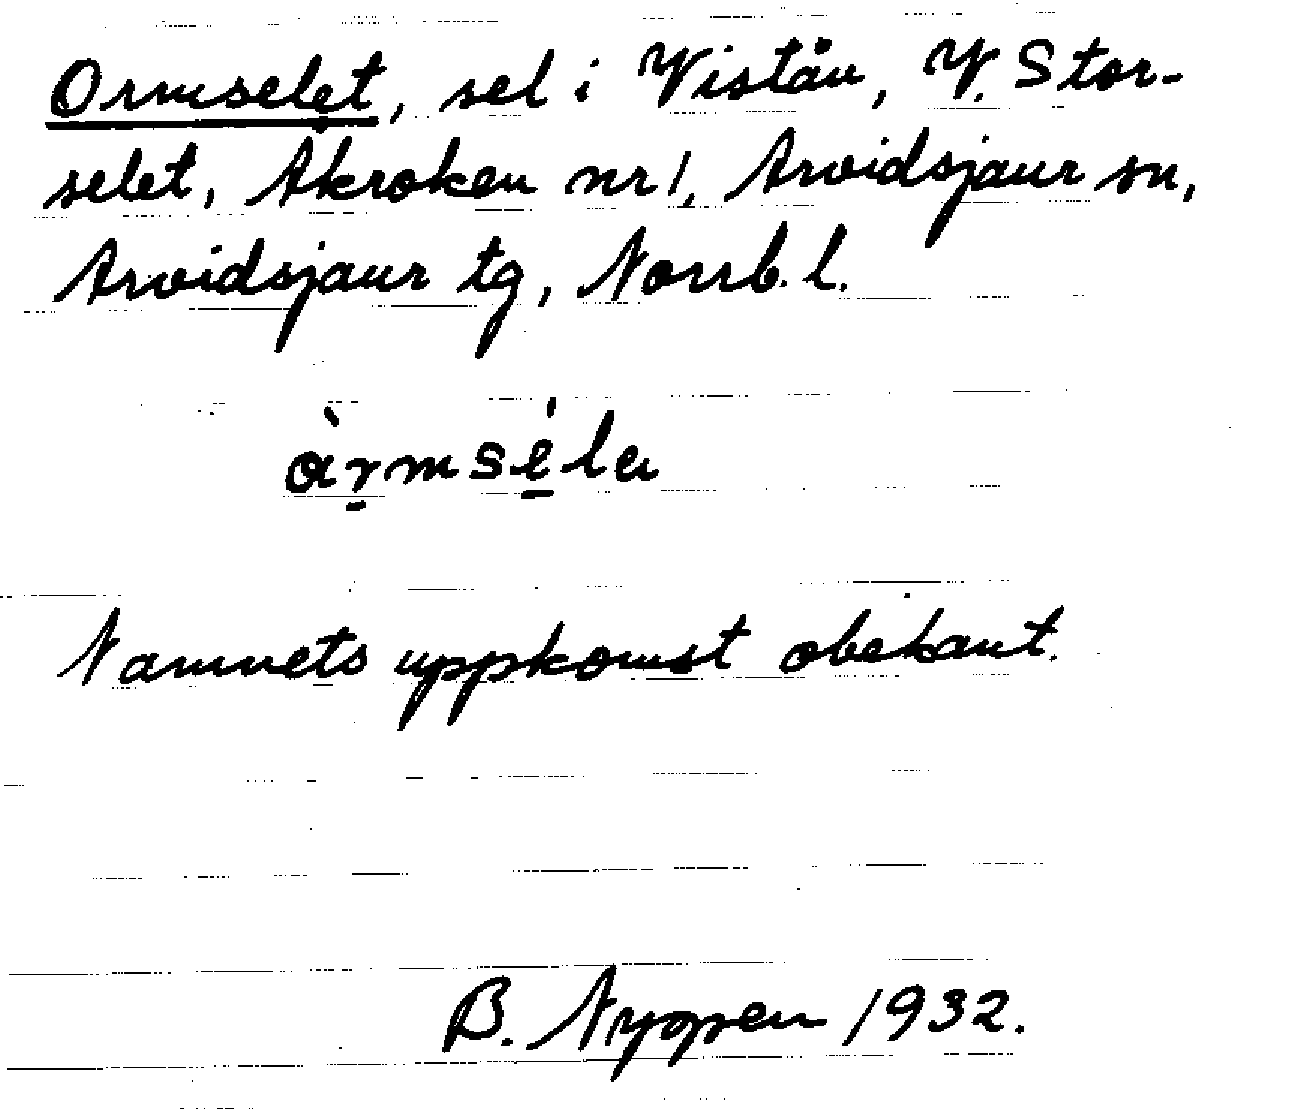 Ormselet, sel i Vistån, V. Stor-
selet, Åkroken nr 1, Arvidsjaur sn,
Arvidsjaur tg, Norrb. l.
àr̠msé̠la
Namnets uppkomst obekant.
B. Nyppen 1932.